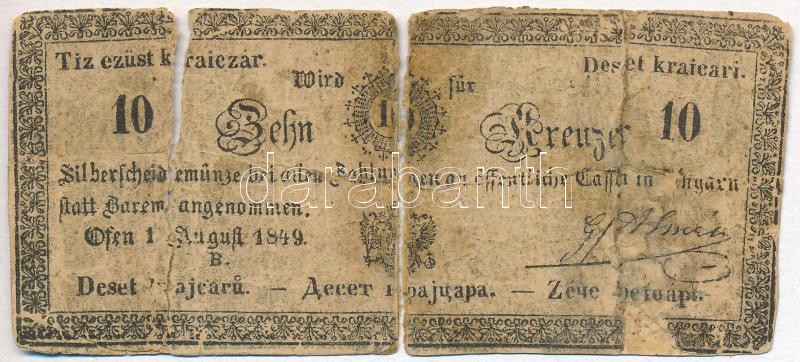 Tiz ezüst kraiczár. Deset kraicari.
Wird für
10 Zehn 10 Kreuzer 10
Silberscheidemünze bei allen Zahlungen an öffentliche Cassen in Ungarn
statt Barem angenommen.
Ofen 1 August 1849.
B.
Deset krajcarů. — Десет крајцара. — Zéce
darabanth